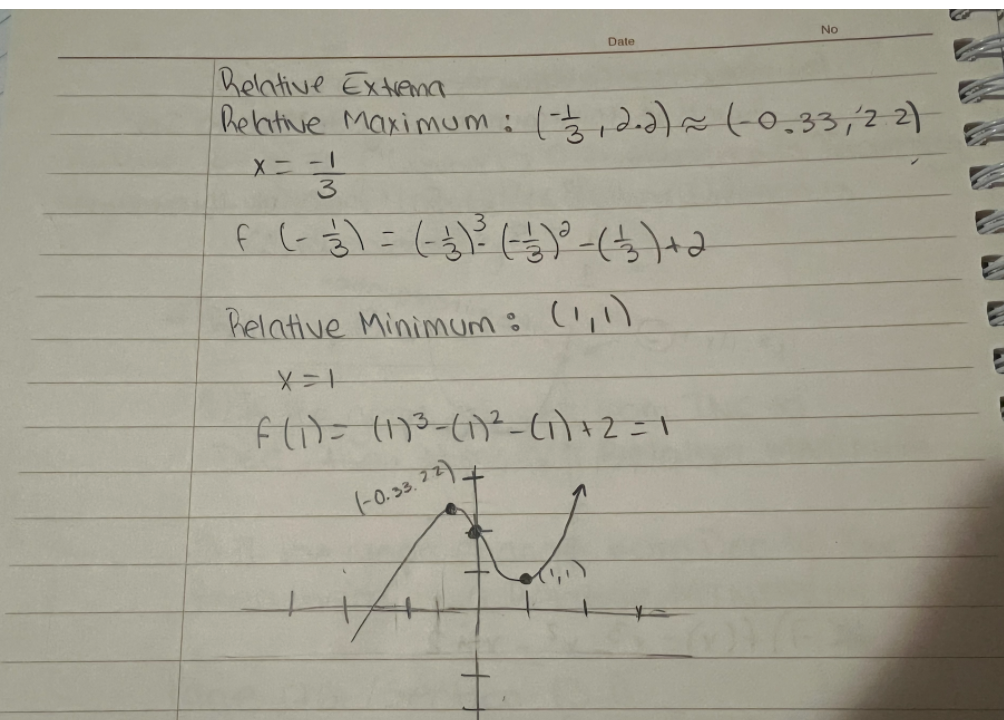 Date No
Relative Extrema
Relative Maximum : (-1/3, 2.2) ≈ (-0.33, 2.2)
x = -1/3
f (-1/3) = (-1/3)³ - (-1/3)² - (1/3) + 2
Relative Minimum : (1,1)
x = 1
f(1) = (1)³ - (1)² - (1) + 2 = 1
(-0.33, 2.2)
(1,1)